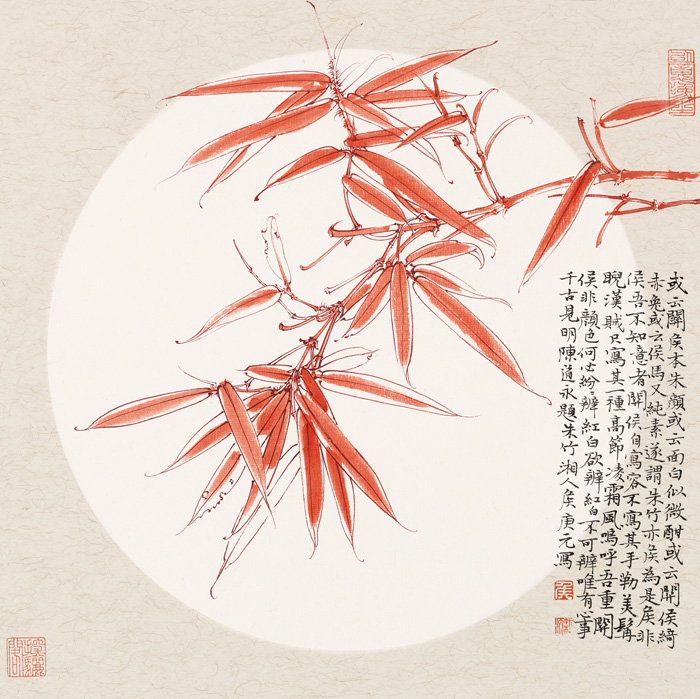 或云關矦本朱顏或云面白似微酣或云關侯綺
赤兔或云侯馬又純素遂謂朱竹亦矦為是矦非
侯吾不知意者關侯自寫容不寫其手勒美髯
睨漢賊只寫其一種高節凌霜風嗚呼吾重關
侯非顏色何必紛辨紅白欲辨紅白不可辨唯有心事
千古見明陳道永題朱竹湘人矦庚元寫